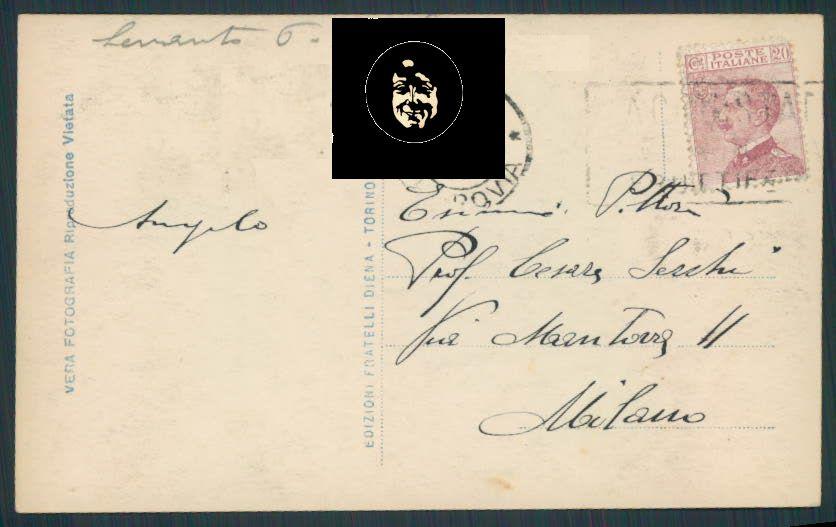 Levanto 6 -
POSTE ITALIANE
20
OVIA *
VERA FOTOGRAFIA Riproduzione Vietata
Angelo
EDIZIONI FRATELLI DIENA - TORINO
Prof. Cesare
Via Mantova 11
Milano